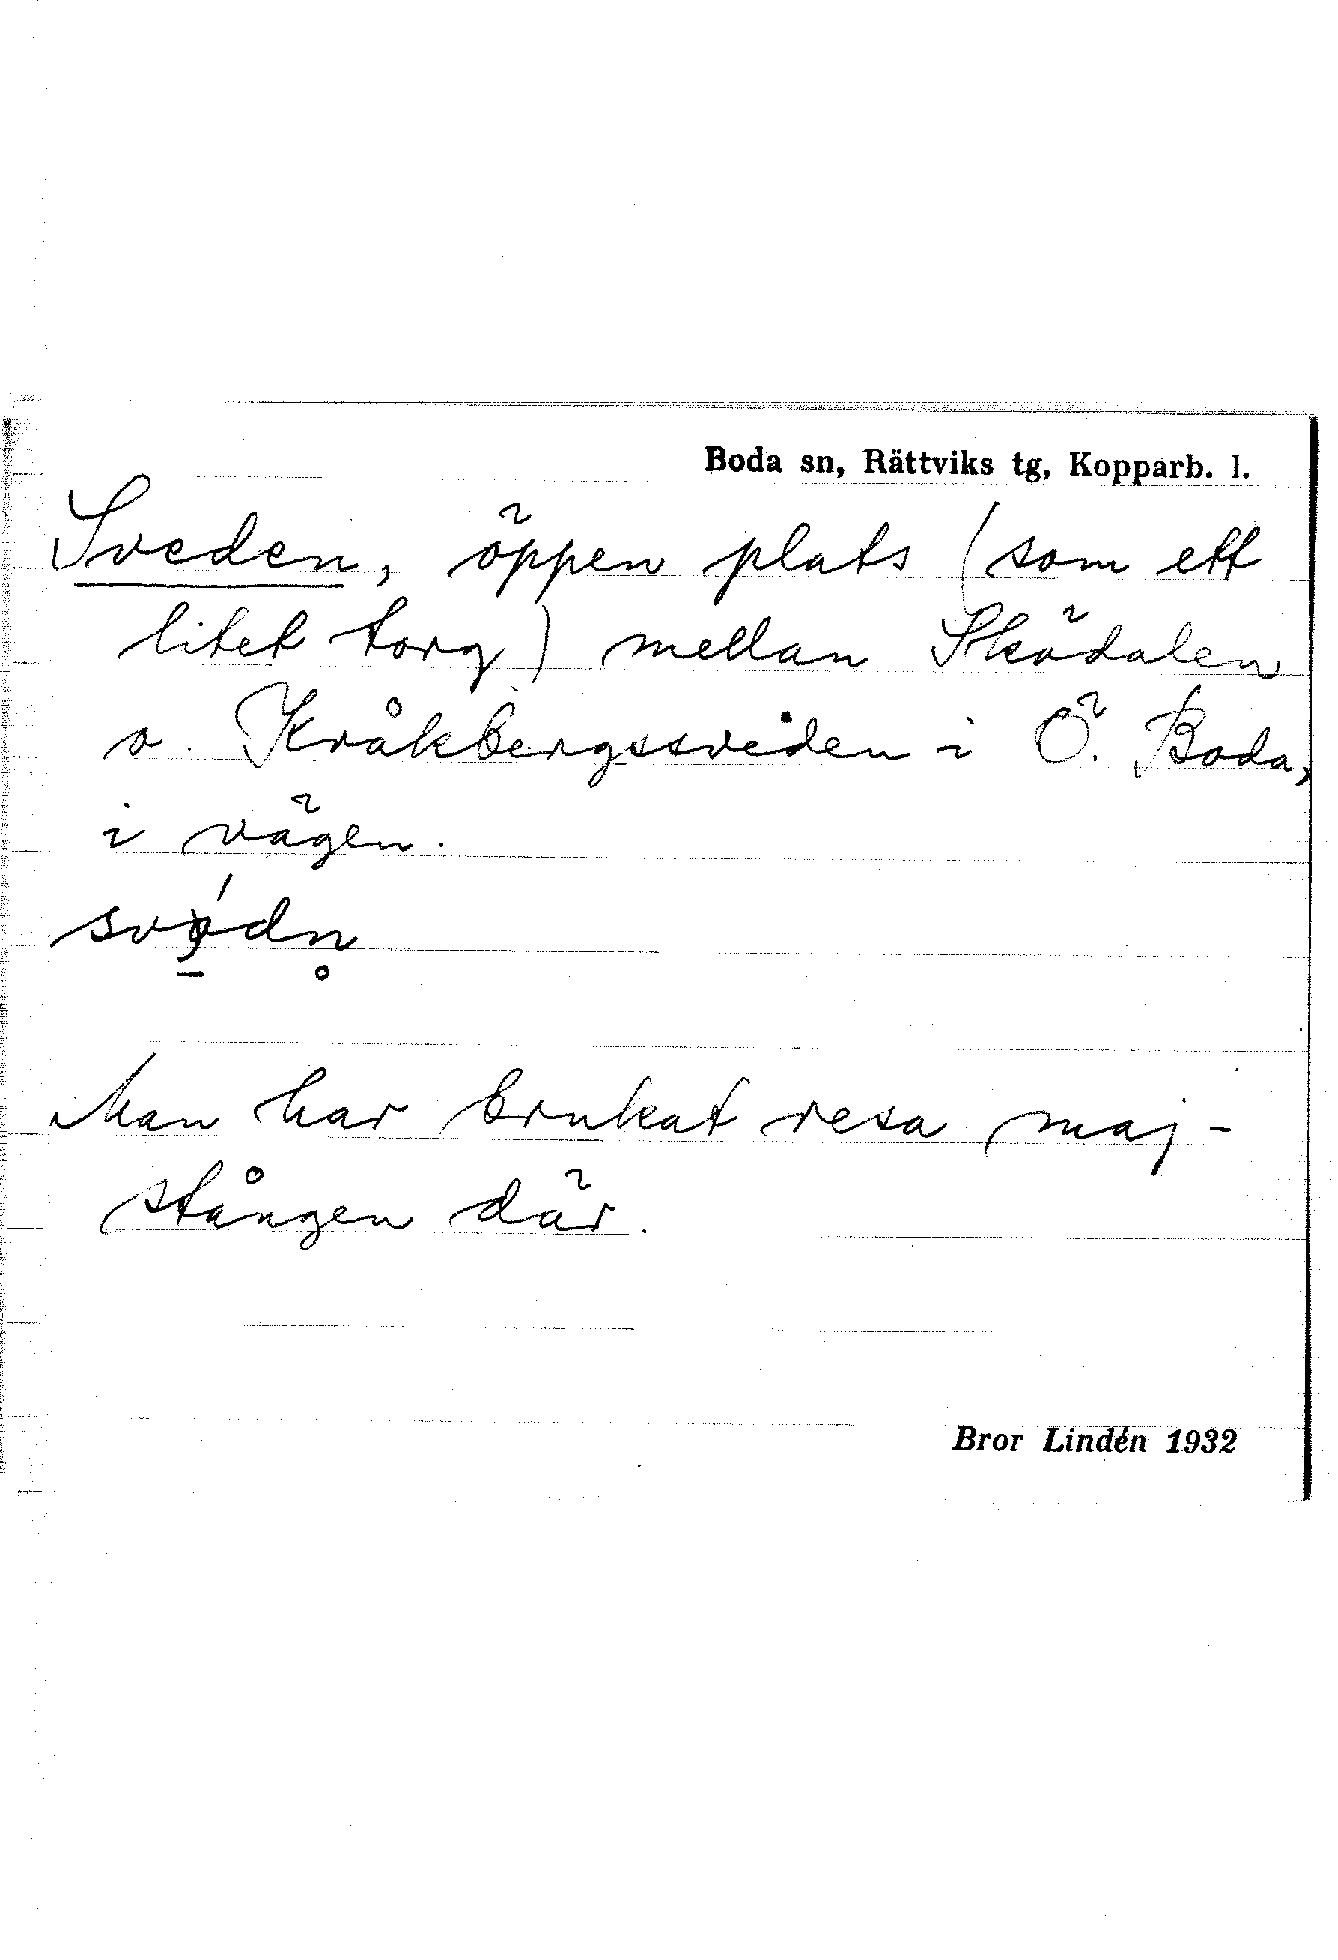 Boda sn, Rättviks tg, Kopparb. l.
Sveden, öppen plats (som ett
litet torg) mellan Sködalen
o. Kråkbergssveden i Ö. Boda,
i vägen.
Man har brukat resa maj-
stången där.
Bror Lindén 1932